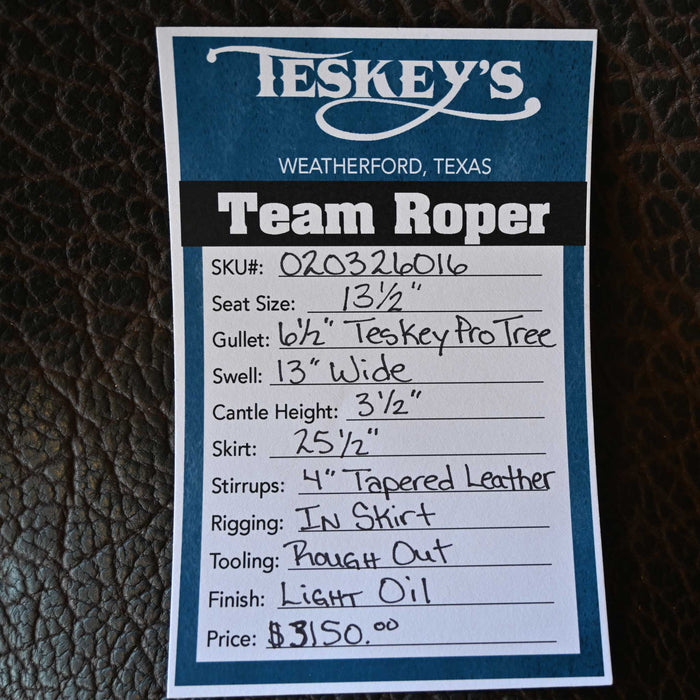 TESKEY'S
WEATHERFORD, TEXAS
Team Roper
SKU#: 020326016
Seat Size: 13½"
Gullet: 6½" Teskey Pro Tree
Swell: 13" Wide
Cantle Height: 3½"
Skirt: 25½"
Stirrups: 4" Tapered Leather
Rigging: In Skirt
Tooling: Rough Out
Finish: Light Oil
Price: $3150.00